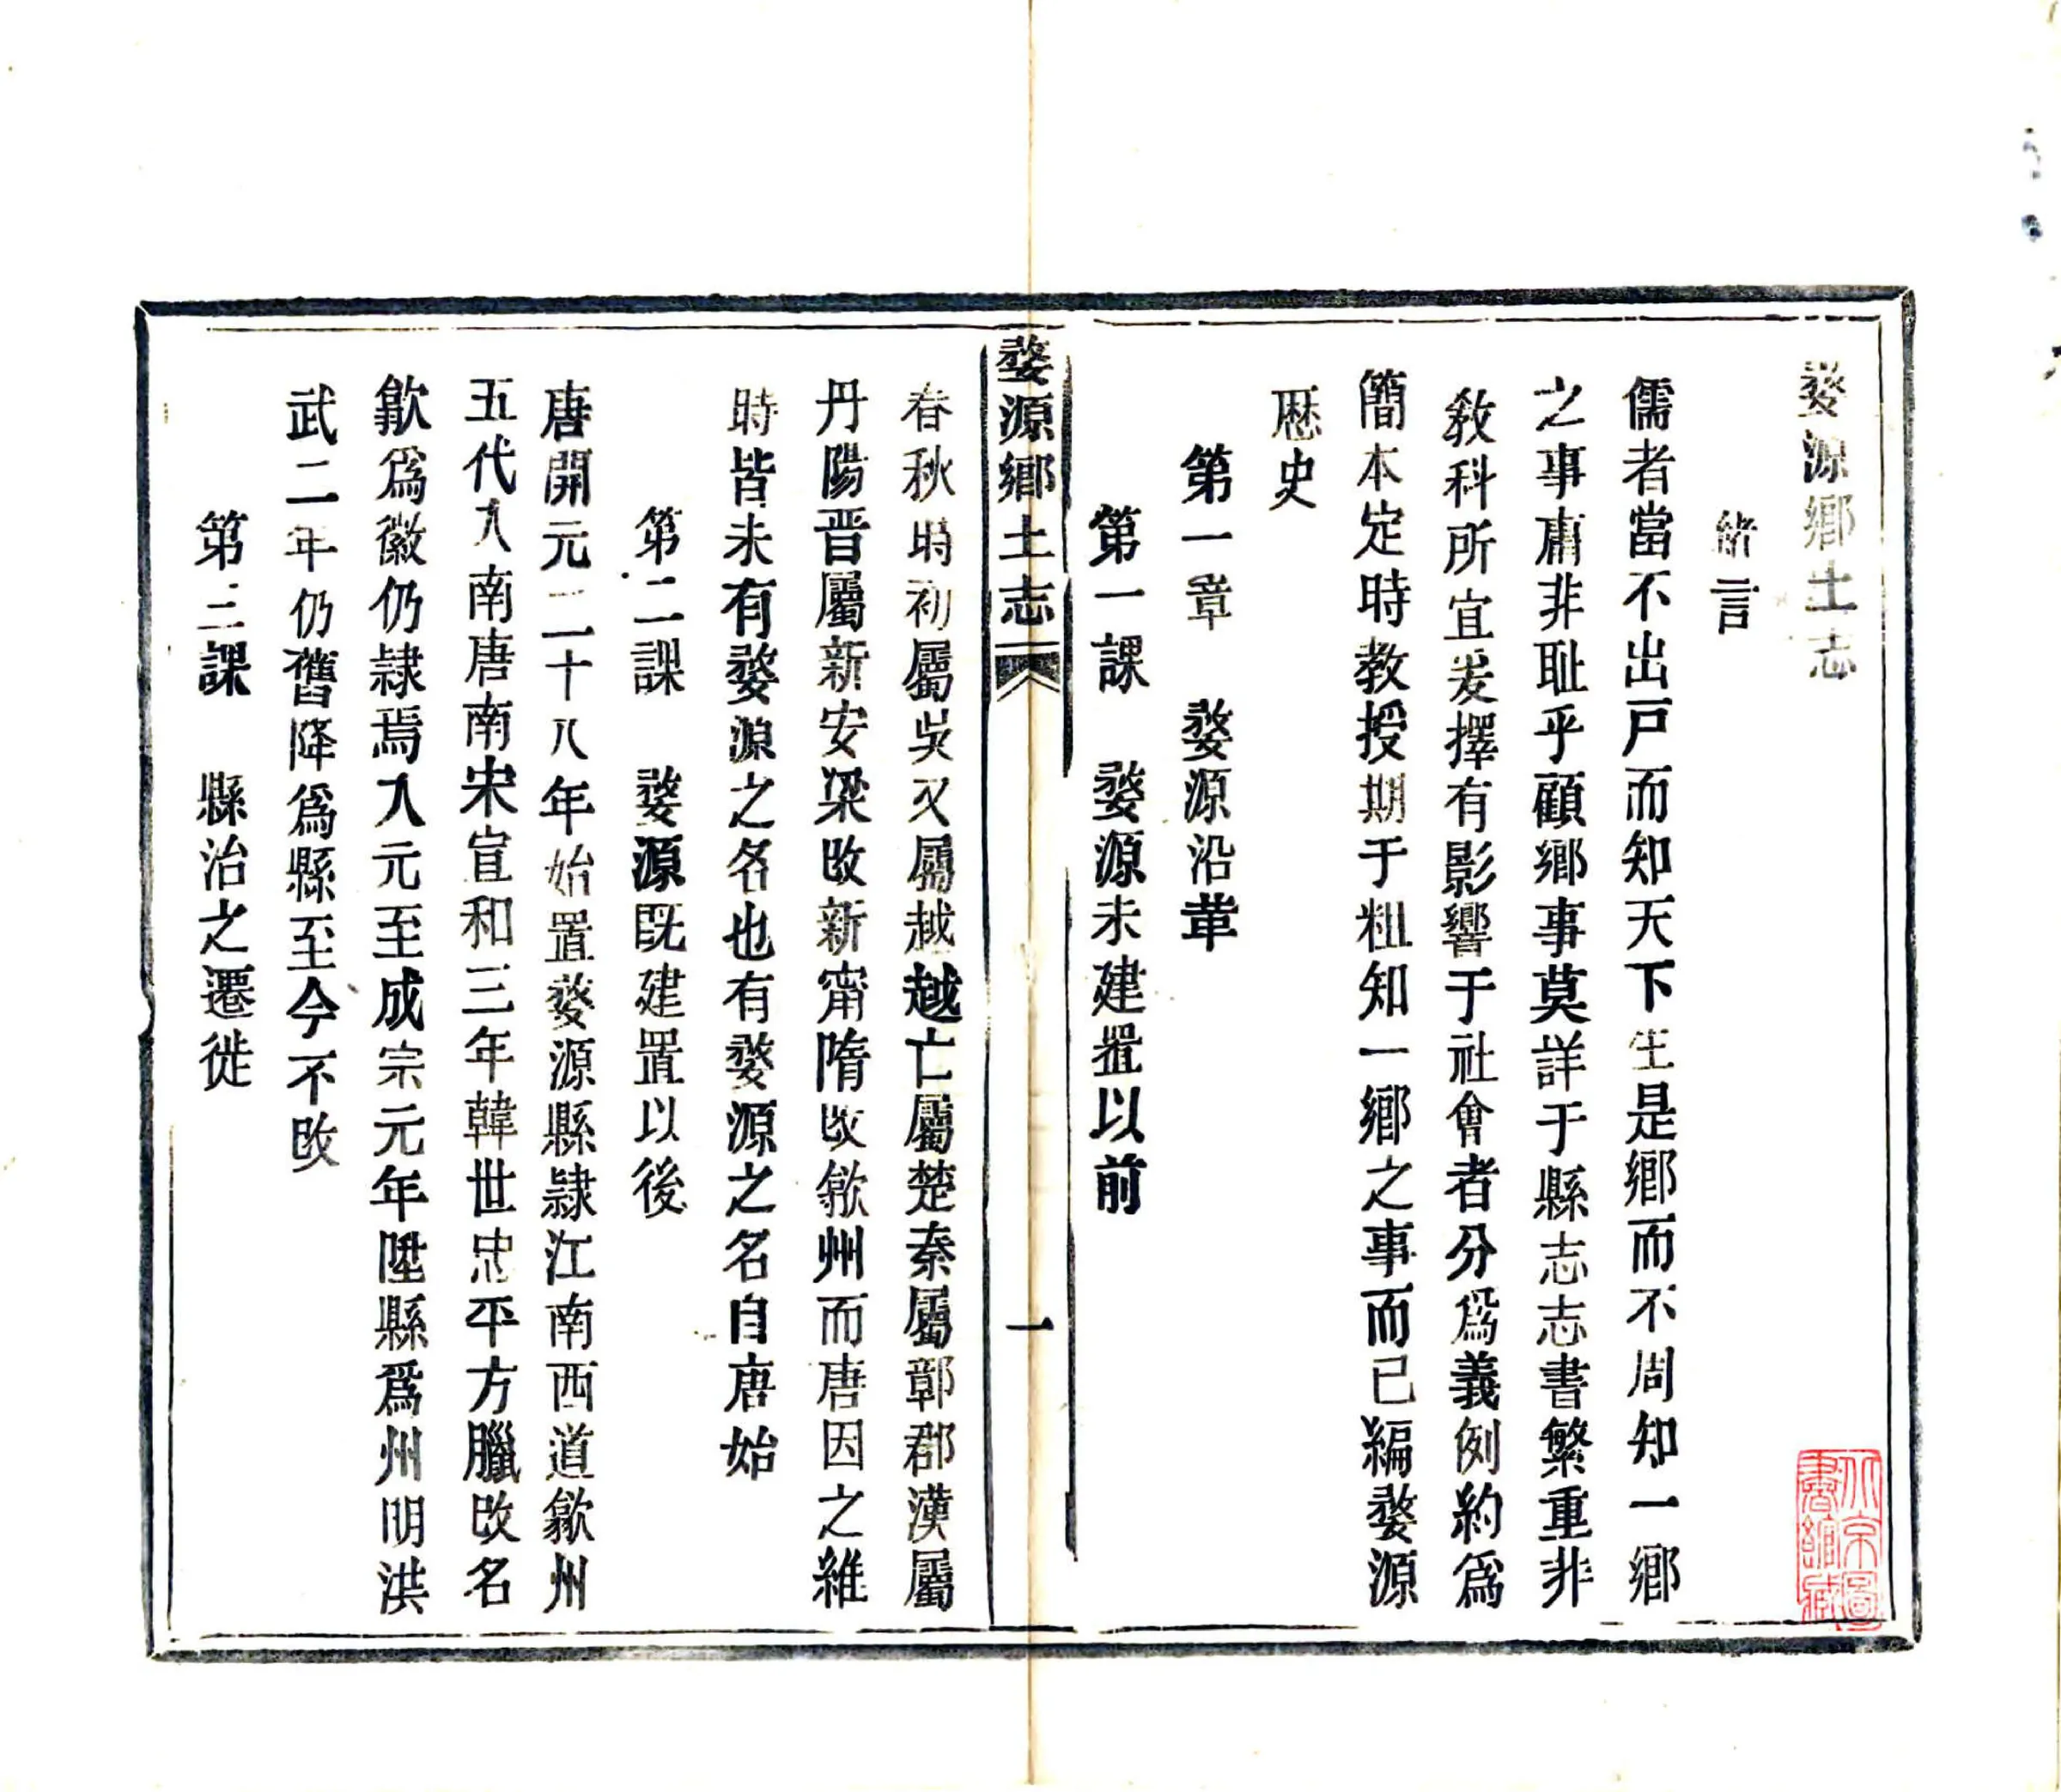 婺源鄉土志
緒言
儒者當不出戸而知天下生是鄉而不周知一鄉
之事庸非恥乎顧鄉事莫詳于縣志志書繁重非
敎科所宜爰擇有影響于社會者分爲義例約爲
簡本定時教授期于粗知一鄉之事而已編婺源
歷史
第一章　婺源沿革
第一課　婺源未建置以前
婺源鄉土志　一
春秋時初屬吳又屬越越亡屬楚秦屬鄣郡漢屬
丹陽晋屬新安梁改新甯隋改歙州而唐因之維
時皆未有婺源之名也有婺源之名自唐始
第二課　婺源既建置以後
唐開元二十八年始置婺源縣隸江南西道歙州
五代入南唐南宋宣和三年韓世忠平方臘改名
歙爲徽仍隸焉入元至成宗元年陞縣爲州明洪
武二年仍舊降爲縣至今不改
第三課　縣治之遷徙
北京圖書館藏